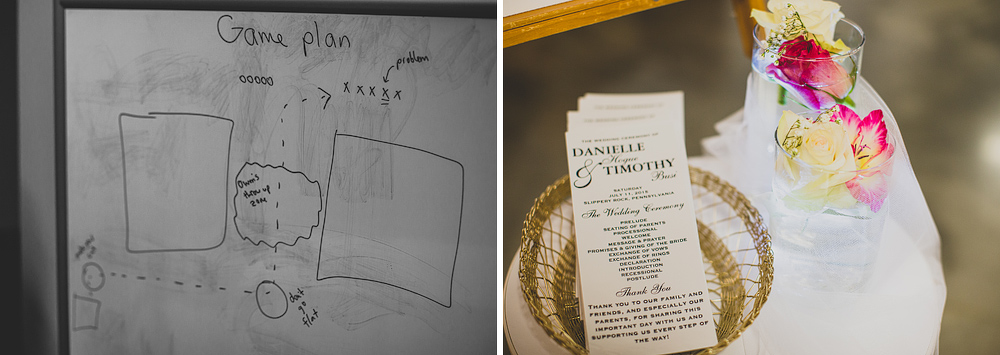 Game plan
problem
OOOOO
X X X X X
Owen's
throw up
zone
don't
go
flat
THE WEDDING CEREMONY OF
DANIELLE
Hogue
& TIMOTHY
Busi
SATURDAY
JULY 11, 2015
SLIPPERY ROCK, PENNSYLVANIA
The Wedding Ceremony
PRELUDE
SEATING OF PARENTS
PROCESSIONAL
WELCOME
MESSAGE & PRAYER
PROMISES & GIVING OF THE BRIDE
EXCHANGE OF VOWS
EXCHANGE OF RINGS
DECLARATION
INTRODUCTION
RECESSIONAL
POSTLUDE
Thank You
THANK YOU TO OUR FAMILY AND
FRIENDS, AND ESPECIALLY OUR
PARENTS, FOR SHARING THIS
IMPORTANT DAY WITH US AND
SUPPORTING US EVERY STEP OF
THE WAY!